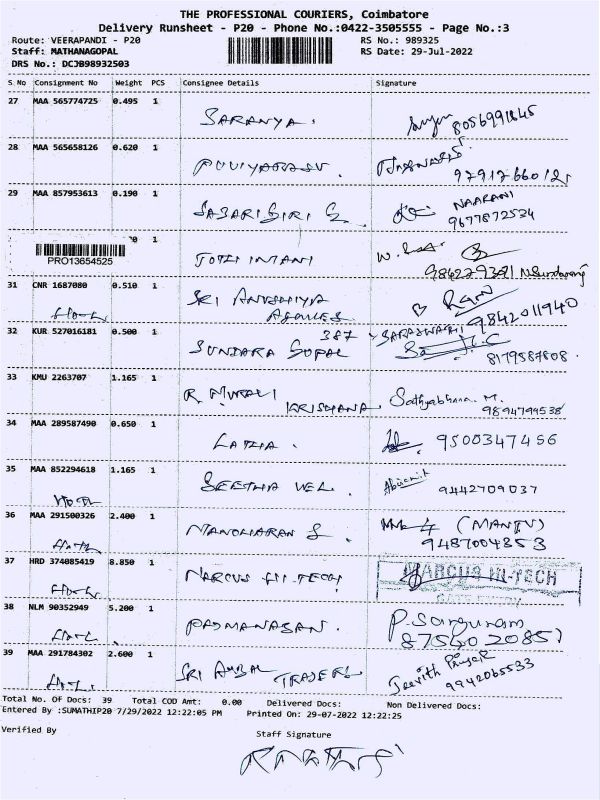 THE PROFESSIONAL COURIERS, Coimbatore
Delivery Runsheet - P20 - Phone No.:0422-3505555 - Page No.:3
Route: VEERAPANDI - P20 RS No.: 989325
Staff: MATHANAGOPAL RS Date: 29-Jul-2022
DRS No.: DCJB98932503
S.No Consignment No Weight PCS Consignee Details Signature
27 MAA 565774725 0.495 1 SARANYA. 8056991845
28 MAA 565658126 0.620 1
29 MAA 857953613 0.190 1 SABARI GIRI NAARANI
9677872534
1 JOTHI MANI
PRO13654525
31 CNR 1687080 0.510 1 SRI Ram 9842011940
32 KUR 527016181 0.500 1 SUNDARA GOPAL 387 SARASWATHI
8179587808.
33 KMU 2263707 1.165 1 R. MURALI KRISHANA Sathyabhama. M.
9894799538
34 MAA 289587490 0.650 1 LATHA. 9500347456
35 MAA 852294618 1.165 1 SEETHA VEL. 9442709037
36 MAA 291500326 2.400 1 MANOHARAN S. (MANJU)
9487004353
37 HRD 374085419 8.850 1 MARCUS HI-TECH MARCUS HI-TECH
38 NLM 90352949 5.200 1 PADMANABAN. P. Sarguram
39 MAA 291784302 2.600 1 SRI AMBAL TRADERS
9942065533
Total No. OF Docs: 39 Total COD Amt: 0.00 Delivered Docs: Non Delivered Docs:
Entered By :SUMATHIP20 7/29/2022 12:22:05 PM Printed On: 29-07-2022 12:22:25
Verified By Staff Signature